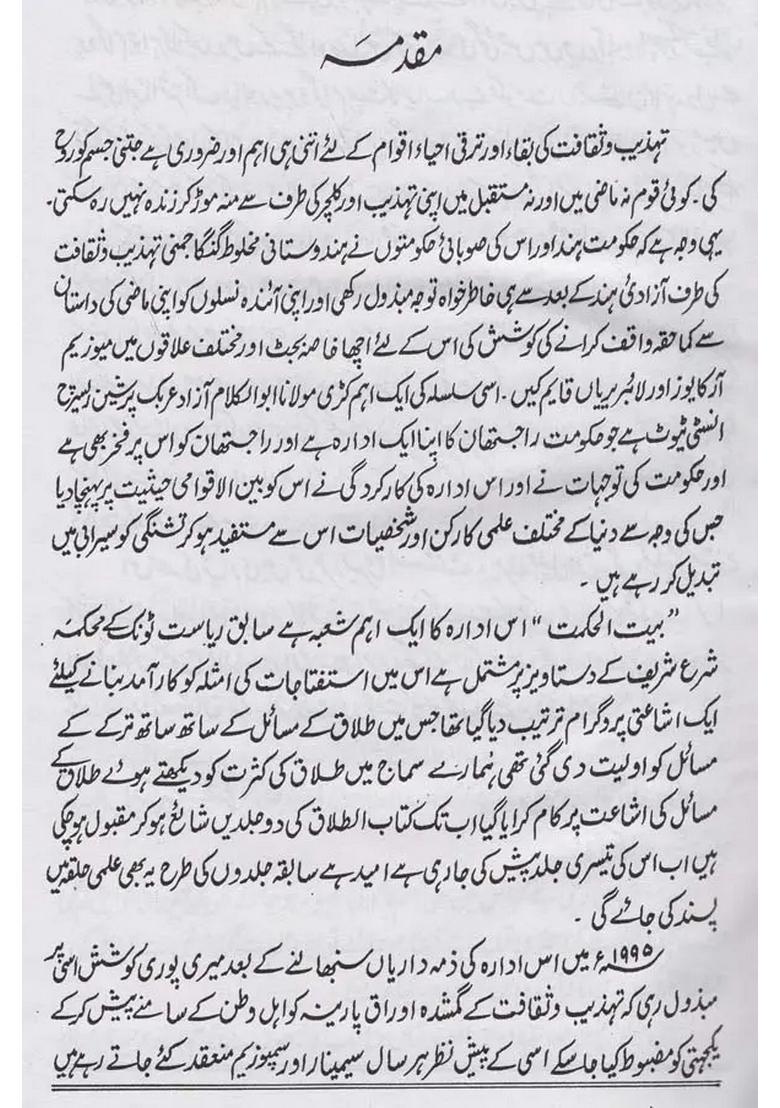 مقدمہ
تہذیب و ثقافت کی بقاء اور ترقی احیاء اقوام کے لئے اتنی ہی اہم اور ضروری ہے جتنی جسم کو روح
کی ۔ کوئی قوم نہ ماضی میں اور نہ مستقبل میں اپنی تہذیب اور کلچر کی طرف سے منہ موڑ کر زندہ نہیں رہ سکتی ۔
یہی وجہ ہے کہ حکومت ہند اور اس کی صوبائی حکومتوں نے ہندوستانی مخلوط گنگا جمنی تہذیب و ثقافت
کی طرف آزادیٔ ہند کے بعد سے ہی خاطر خواہ توجہ مبذول رکھی اور اپنی آئندہ نسلوں کو اپنی ماضی کی داستان
سے کما حقہ واقف کرانے کی کوشش کی اس کے لئے اچھا خاصہ بجٹ اور مختلف علاقوں میں میوزیم
آرکایوز اور لائبریریاں قایم کیں ۔ اسی سلسلہ کی ایک اہم کڑی مولانا ابوالکلام آزاد عربک پرشین ریسرچ
انسٹی ٹیوٹ ہے جو حکومت راجستھان کا اپنا ایک ادارہ ہے اور راجستھان کو اس پر فخر بھی ہے
اور حکومت کی توجہات نے اور اس ادارہ کی کارکردگی نے اس کو بین الاقوامی حیثیت پر پہنچا دیا
جس کی وجہ سے دنیا کے مختلف علمی کارکن اور شخصیات اس سے مستفید ہو کر تشنگی کو سیرابی میں
تبدیل کر رہے ہیں ۔
”بیت الحکمت“ اس ادارہ کا ایک اہم شعبہ ہے سابق ریاست ٹونک کے محکمہ
شرع شریف کے دستاویز پر مشتمل ہے اس میں استفتاجات کی امثلہ کو کار آمد بنانے کیلئے
ایک اشاعتی پروگرام ترتیب دیا گیا تھا جس میں طلاق کے مسائل کے ساتھ ساتھ ترکے کے
مسائل کو اولیت دی گئی تھی ہمارے سماج میں طلاق کی کثرت کو دیکھتے ہوئے طلاق کے
مسائل کی اشاعت پر کام کرایا گیا اب تک کتاب الطلاق کی دو جلدیں شائع ہو کر مقبول ہو چکی
ہیں اب اس کی تیسری جلد پیش کی جا رہی ہے امید ہے سابقہ جلدوں کی طرح یہ بھی علمی حلقہ میں
پسند کی جائے گی ۔
۱۹۹۵ء میں اس ادارہ کی ذمہ داریاں سنبھالنے کے بعد میری پوری کوشش اسی پر
مبذول رہی کہ تہذیب و ثقافت کے گمشدہ اوراق پارینہ کو اہل وطن کے سامنے پیش کر کے
یکجہتی کو مضبوط کیا جا سکے اسی کے پیش نظر ہر سال سیمینار اور سمپوزیم منعقد کئے جاتے رہے ہیں